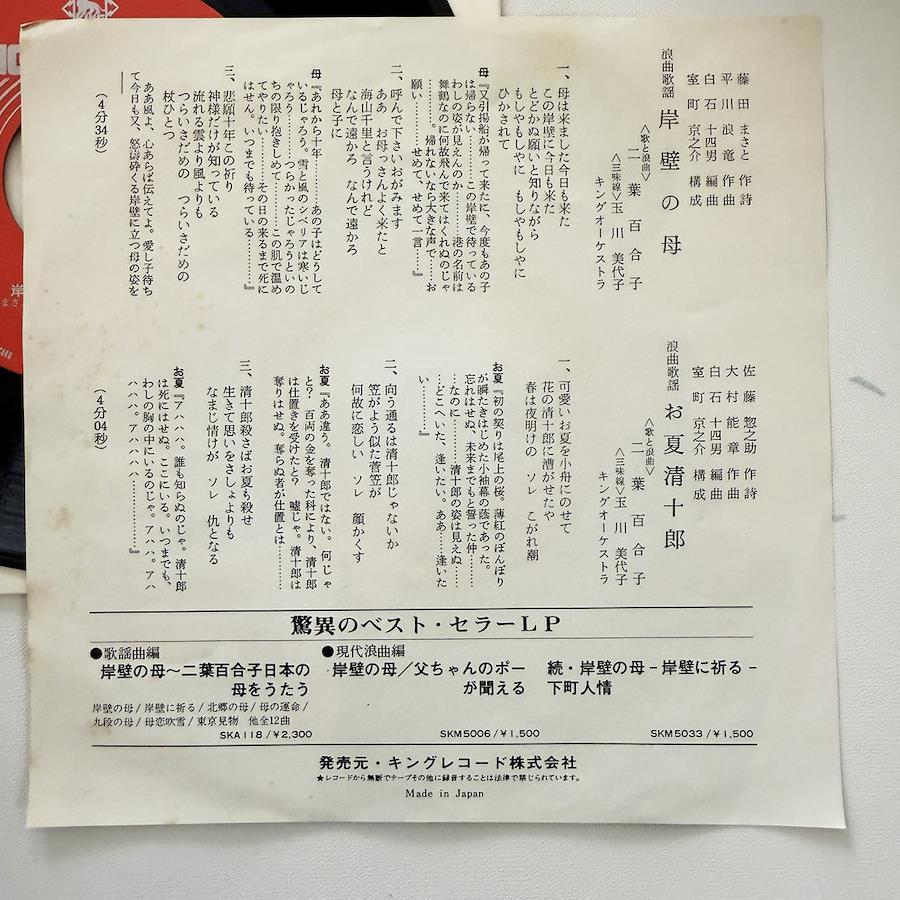 藤田まさと 作詩
平川浪竜 作曲
白石十四男 編曲
室町京之介 構成
浪曲歌謡 岸壁の母
〈歌と浪曲〉二葉百合子
〈三味線〉玉川美代子
キングオーケストラ
一、母は来ました今日も来た
この岸壁に今日も来た
とどかぬ願いと知りながら
もしやもしやに もしやもしやに
ひかされて
母『又引揚船が帰って来たに、今度もあの子
は帰らない……この岸壁で待っている
わしの姿が見えんのか……港の名前は
舞鶴なのに何故飛んで来てはくれぬのじゃ
……帰れないなら大きな声で……お
願い……せめて、せめて一言……』
二、呼んで下さいおがみます
ああ お母っさんよく来たと
海山千里と言うけれど
なんで遠かろ なんで遠かろ
母と子に
母『あれから十年……あの子はどうして
いるじゃろう。雪と風のシベリアは寒いじ
ゃろう……つらかったじゃろうといの
ちの限り抱きしめて……この肌で温め
てやりたい……その日の来るまで死に
はせん。いつまでも待っている……』
三、悲願十年この祈り
神様だけが知っている
流れる雲より風よりも
つらいさだめの つらいさだめの
杖ひとつ
ああ風よ、心あらば伝えてよ。愛し子待ち
て今日も又、怒濤砕くる岸壁に立つ母の姿を
(4分34秒)
佐藤惣之助 作詩
大村能章 作曲
白石十四男 編曲
室町京之介 構成
浪曲歌謡 お夏清十郎
〈歌と浪曲〉二葉百合子
〈三味線〉玉川美代子
キングオーケストラ
一、可愛いお夏を小舟にのせて
花の清十郎に漕がせたや
春は夜明けの ソレ こがれ潮
お夏『初の契りは尾上の桜。薄紅のぼんぼり
が瞬たきはじめた小袖幕の蔭であった。
忘れはせぬ、未来までもと誓った仲……
……なのに……清十郎の姿は見えぬ…
…どこへいた、逢いたい。ああ…逢いた
い…………』
二、向う通るは清十郎じゃないか
笠がよう似た菅笠が
何故に恋しい ソレ 顔かくす
お夏『ああ違う。清十郎ではない。何じゃ
と？ 百両の金を奪った科により、清十郎
は仕置きを受けたと？ 嘘じゃ。清十郎は
奪りはせぬ。奪らぬ者が仕置とは……』
三、清十郎殺さばお夏も殺せ
生きて思いをさしょよりも
なまじ情けが ソレ 仇となる
お夏『アハハハ。誰も知らぬのじゃ。清十郎
は死にはせぬ。ここにいる。いつまでも、
わしの胸の中にいるのじゃ。アハハ。アハ
ハハハ。アハハハハ…………』
(4分04秒)
驚異のベスト・セラーLP
●歌謡曲編
岸壁の母〜二葉百合子日本の
母をうたう
岸壁の母/岸壁に祈る/北郷の母/母の運命/
九段の母/母恋吹雪/東京見物 他全12曲
SKA118/¥2,300
●現代浪曲編
岸壁の母/父ちゃんのポー
が聞える
SKM5006/¥1,500
続・岸壁の母-岸壁に祈る-
下町人情
SKM5033/¥1,500
発売元・キングレコード株式会社
★レコードから無断でテープその他に録音することは法律で禁じられています。
Made in Japan